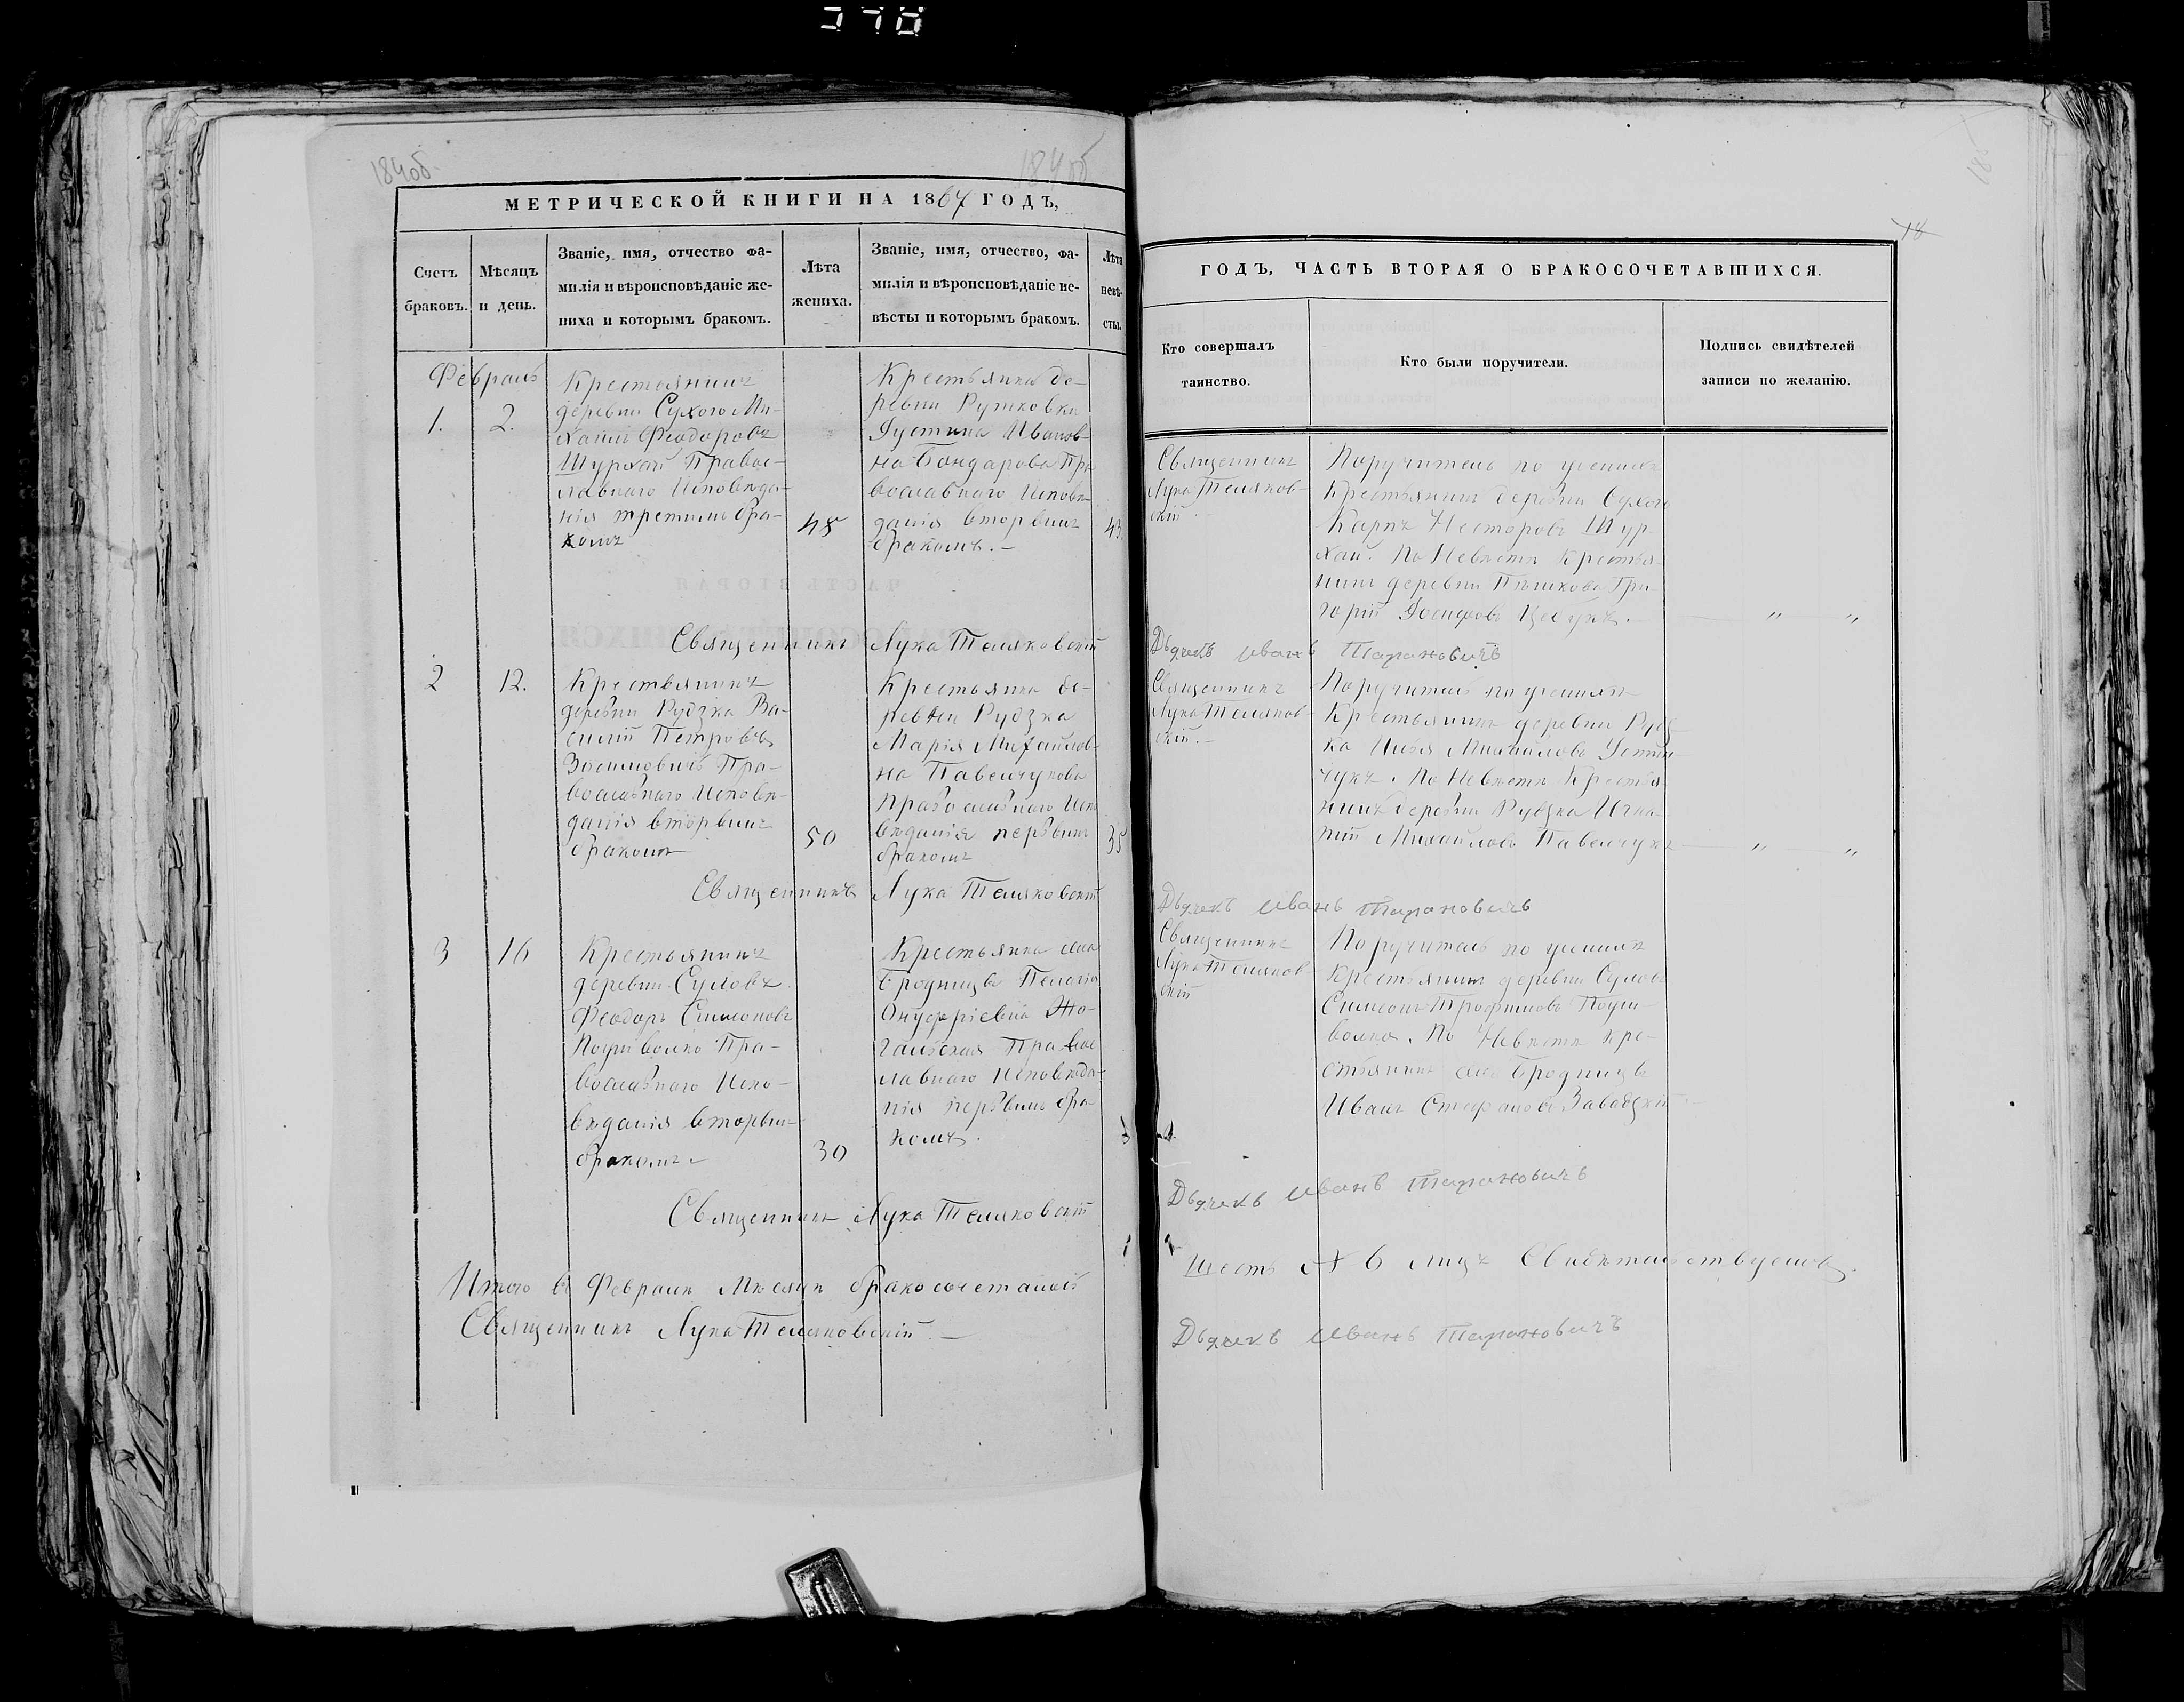 184об.
184об
МЕТРИЧЕСКОЙ КНИГИ НА 1867 ГОДЪ,
Счетъ браковъ.
Мѣсяцъ и день.
Званіе, имя, отчество фа-
милія и вѣроисповѣданіе же-
ниха и которымъ бракомъ.
Лѣта
жениха.
Званіе, имя, отчество, фа-
милія и вѣроисповѣданіе не-
вѣсты и которымъ бракомъ.
Лѣта
невѣ-
сты.
Февраль
1.
2.
Крестьянинъ
деревни Сухого Ми-
хаилъ Феодоровъ
Шурхай Правос-
лавнаго Исповѣда-
нія третимъ бра-
комъ
48
Крестьянка де-
ревни
Іустина Иванов-
на Бондарова Пра
вославнаго Исповѣ
данія вторымъ
бракомъ. —
43.
Священникъ Лука Теляковскій
2
12.
Крестьянинъ
деревни Рудзка Ва-
силій Петровъ
Православнаго Исповѣ-
данія вторымъ
бракомъ
50
Крестьянка де-
ревни Рудзка
Марія Михайлов-
на Павельчукова
Православнаго Испо
вѣданія первымъ
бракомъ
35
Священникъ Лука Теляковскій
3
16
Крестьянинъ
деревни
Феодоръ Симеоновъ
Пра-
вославнаго Испо-
вѣданія вторымъ
бракомъ –
30
Крестьянка села
Бродницъ Пелагія
Онуфріевна
Правос
лавнаго Исповѣда-
нія первымъ бра-
комъ.
Священникъ Лука Теляковскій
Итого въ Февралѣ Мѣсяцѣ бракосочеталось
Священникъ Лука Теляковскій. —
18
ГОДЪ, ЧАСТЬ ВТОРАЯ О БРАКОСОЧЕТАВШИХСЯ.
Кто совершалъ
таинство.
Кто были поручители.
Подпись свидѣтелей
записи по желанію.
Священникъ
Лука Теляков-
скій.
Поручитель по женихѣ
Крестьянинъ деревни Сухого
Карпъ Несторовъ Шур
хай. По Невѣстѣ Крестья
нинъ деревни Гри
горій Іосифовъ
Дьячекъ Иванъ Тарановичъ
Священникъ
Лука Теляков-
скій. –
Поручитель по женихѣ
Крестьянинъ деревни Рудз
ка Илья Михайловъ
По Невѣстѣ Крестья
нинъ деревни Рудзка Игна
тій Михайловъ Павельчукъ
Дьячекъ Иванъ Тарановичъ
Священникъ
Лука Теляков
скій
Поручитель по женихѣ
Крестьянинъ деревни
Симеонъ Трофимовъ
По Невѣстѣ Кре-
стьянинъ села Бродницъ
Иванъ Стефановъ Завадзкій
Дьячекъ Иванъ Тарановичъ
Шесть № 6 лицъ Свидѣтельствуемъ.
Дьячекъ Иванъ Тарановичъ